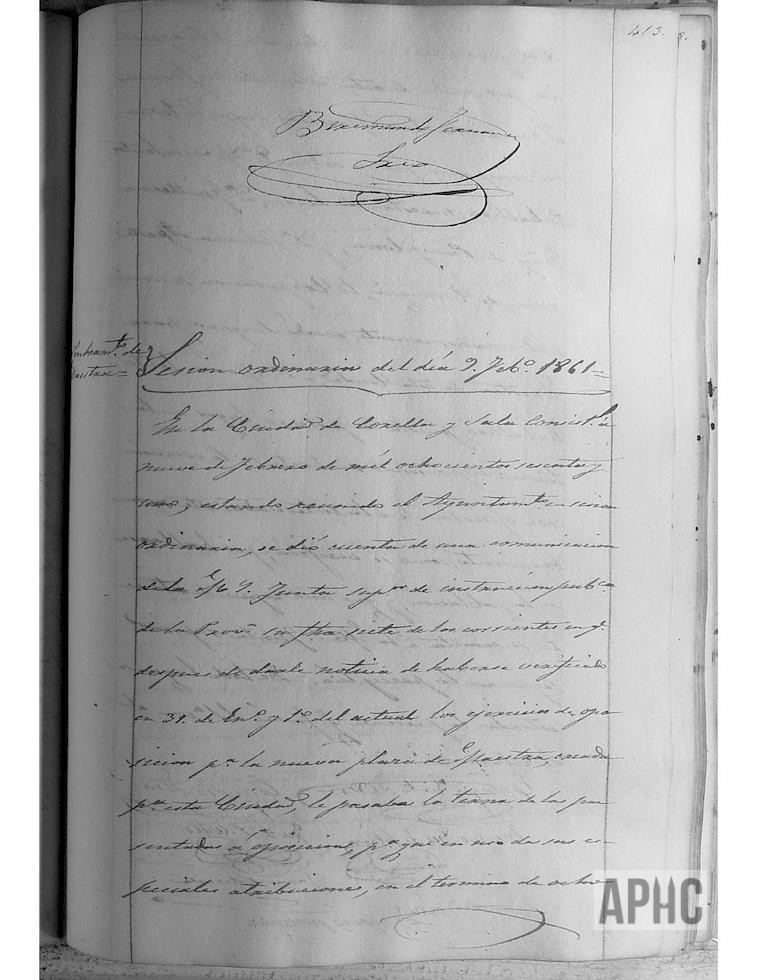 413.
Beremundo
Srio
Nombram.to de
Maestra =
Sesion ordinaria del dia 9. Feb.o 1861 =
En la Ciudad de Corella y Sala Consist.l á
nueve de Febrero de mil ochocientos sesenta y
uno, estando reunido el Ayuntam.to en sesion
ordinaria, se dió cuenta de una comunicacion
de la M. Y. Junta sup.or de instruccion pub.ca
de la Prov.a su fha siete de los corrientes en q.e
despues de darle noticia de haberse verificado
en 31. de En.o y 1.o del actual los ejercicios de opo
sicion p.a la nueva plaza de Maestra, creada
p.r esta Ciudad, le pasaba la terna de las pre
sentadas a oposicion, p.a que en uso de sus es-
peciales atribuciones, en el termino de ocho
APHC